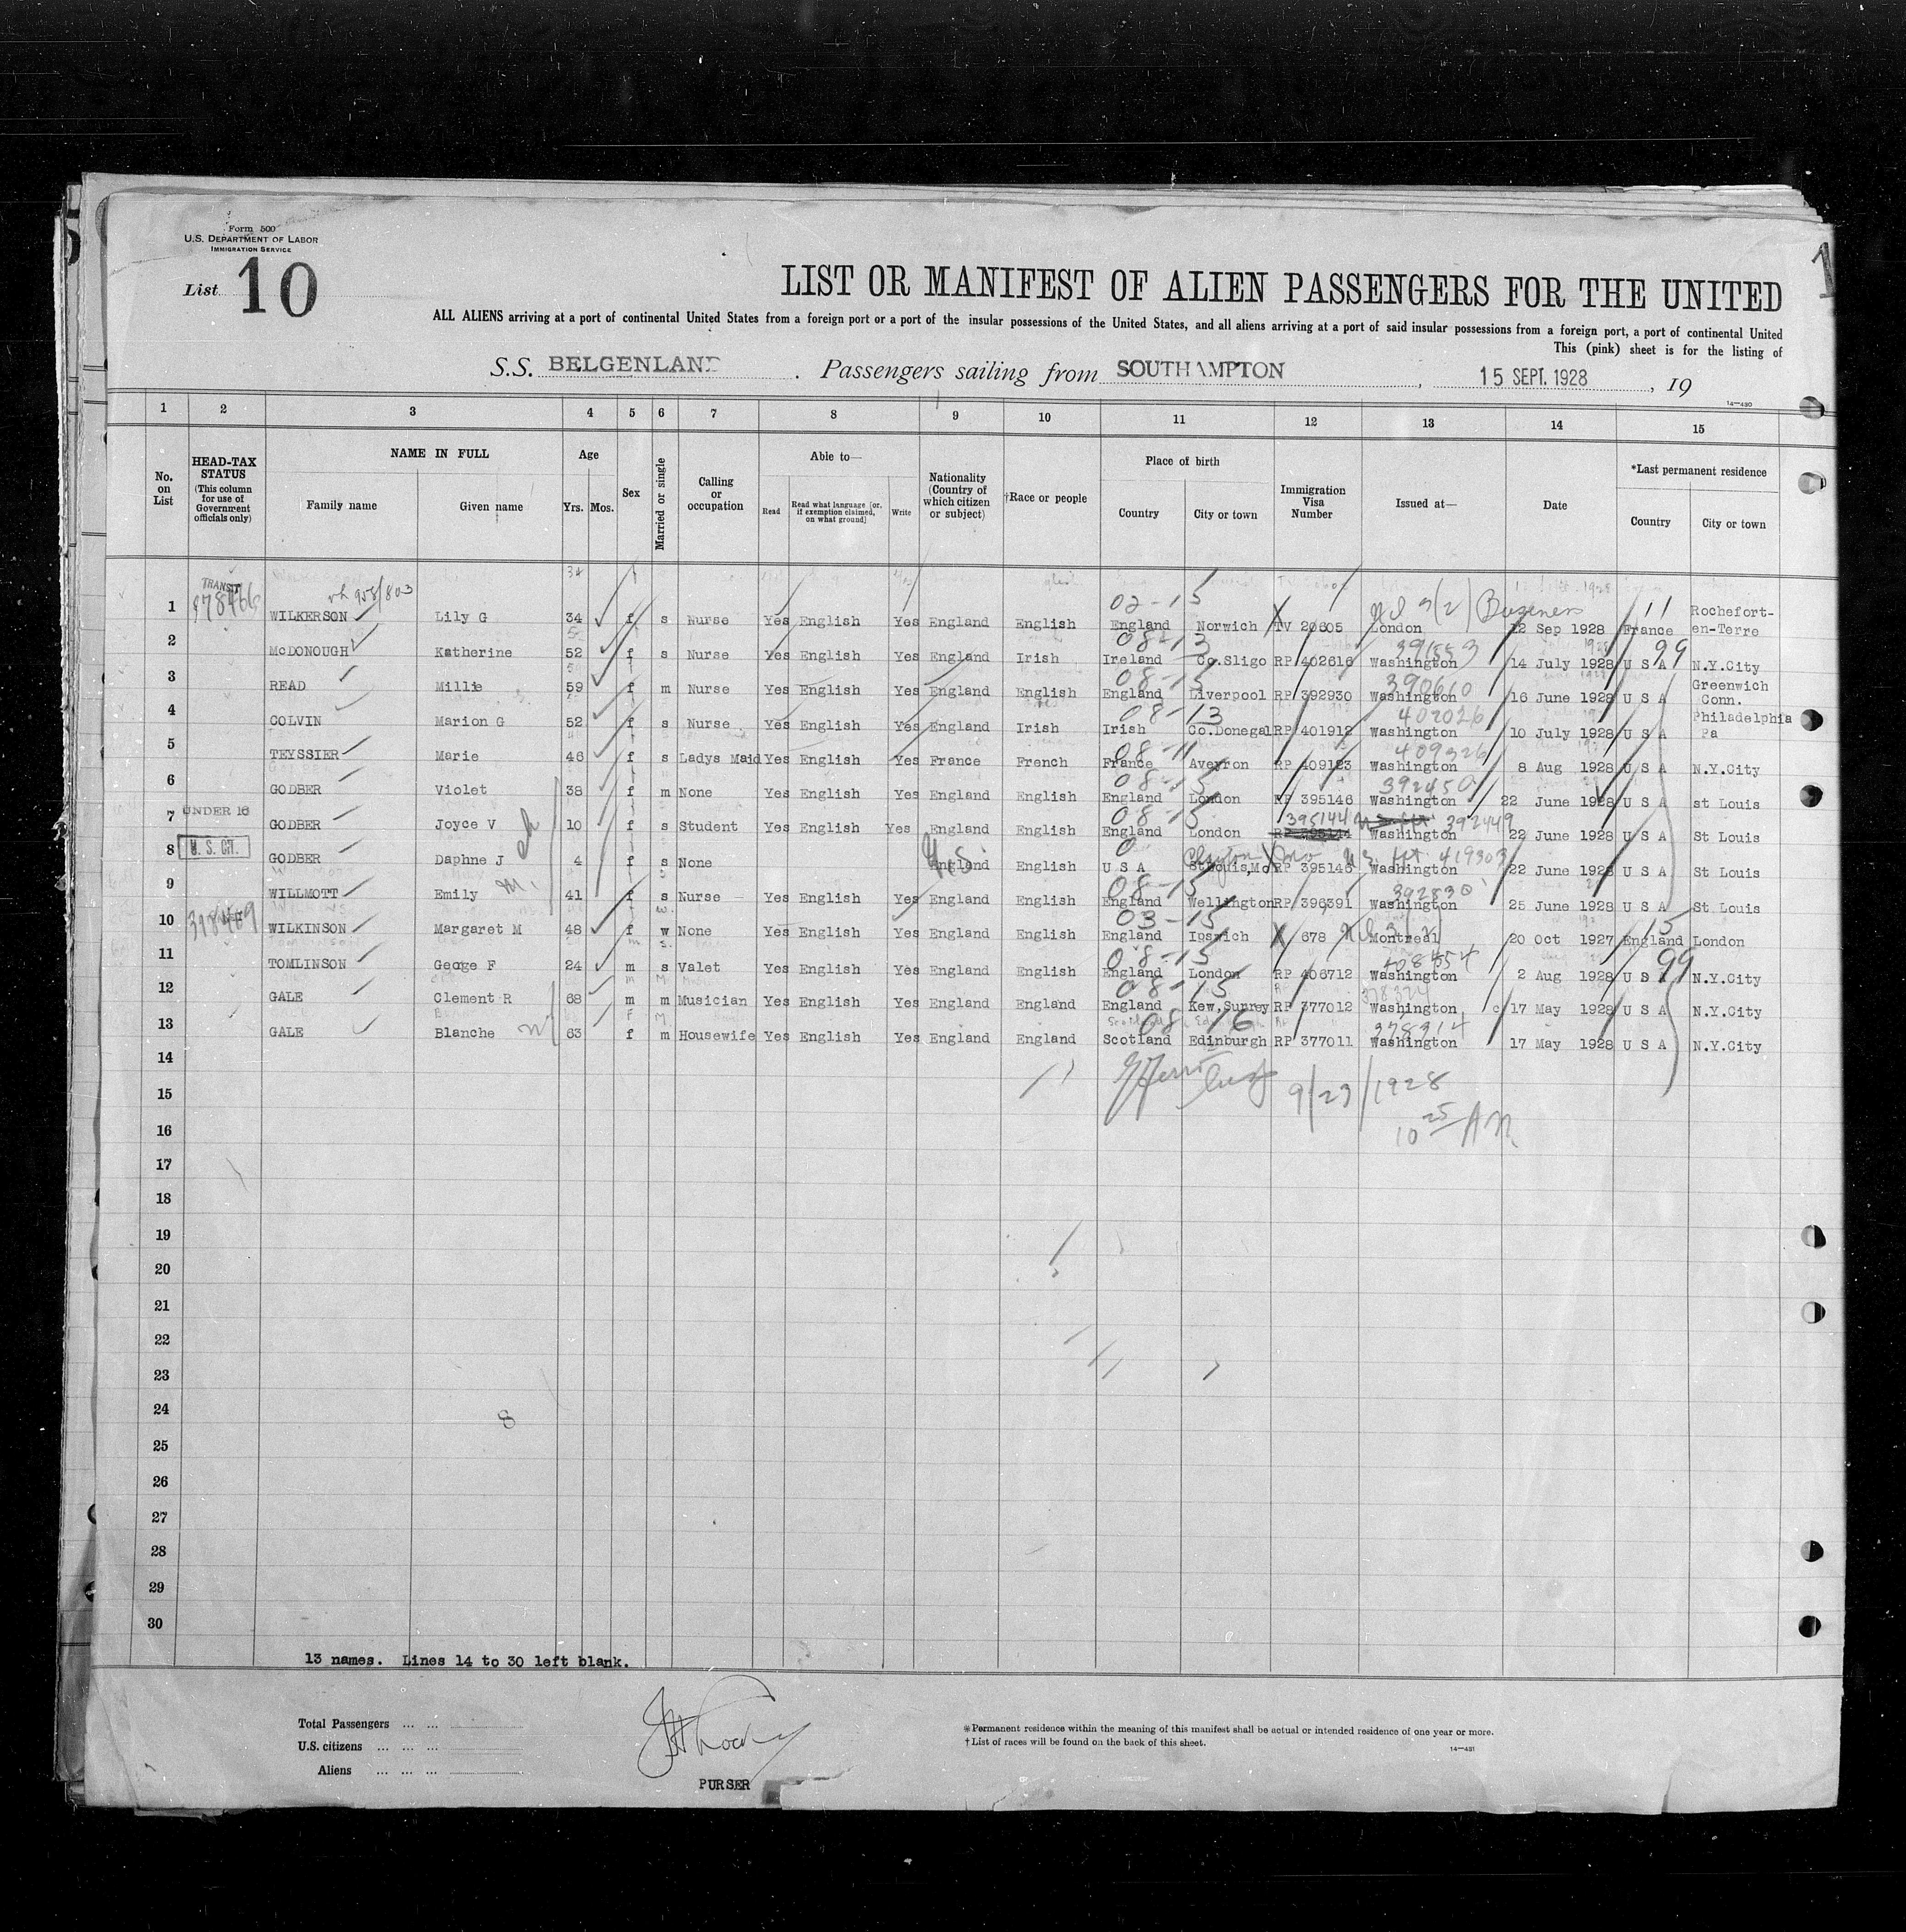 Form 500
U.S. DEPARTMENT OF LABOR
IMMIGRATION SERVICE
List 10
LIST OR MANIFEST OF ALIEN PASSENGERS FOR THE UNITED
ALL ALIENS arriving at a port of continental United States from a foreign port or a port of the insular possessions of the United States, and all aliens arriving at a port of said insular possessions from a foreign port, a port of continental United
This (pink) sheet is for the listing of
S.S. BELGENLAND . Passengers sailing from SOUTHAMPTON , 15 SEPT. 1928 , 19
14—480
1 2 3 4 5 6 7 8 9 10 11 12 13 14 15
No. on List
HEAD-TAX STATUS (This column for use of Government officials only)
NAME IN FULL
Family name Given name
Age
Yrs. Mos.
Sex
Married or single
Calling or occupation
Able to—
Read Read what language [or, if exemption claimed, on what ground] Write
Nationality (Country of which citizen or subject)
†Race or people
Place of birth
Country City or town
Immigration Visa Number
Issued at—
Date
*Last permanent residence
Country City or town
TRANSIT
02-15 11
1 WILKERSON Lily G 34 f s Nurse Yes English Yes England English England Norwich TV 20605 London 12 Sep 1928 France Rochefort-en-Terre
08-13 391553 99
2 McDONOUGH Katherine 52 f s Nurse Yes English Yes England Irish Ireland Co.Sligo RP 402616 Washington 14 July 1928 U S A N.Y.City
08-15 390610
3 READ Millie 59 f m Nurse Yes English Yes England English England Liverpool RP 392930 Washington 16 June 1928 U S A Greenwich Conn.
08-13 402026
4 COLVIN Marion G 52 f s Nurse Yes English Yes England Irish Irish Co.Donegal RP 401912 Washington 10 July 1928 U S A Philadelphia Pa
08-11 409326
5 TEYSSIER Marie 46 f s Ladys Maid Yes English Yes France French France Aveyron RP 409123 Washington 8 Aug 1928 U S A N.Y.City
08-15 392450
6 GODBER Violet 38 f m None Yes English Yes England English England London RP 395146 Washington 22 June 1928 U S A st Louis
UNDER 16 08-15 395144 392449
7 GODBER Joyce V 10 f s Student Yes English Yes England English England London Washington 22 June 1928 U S A St Louis
U. S. CIT. U.S. Clayton 419303
8 GODBER Daphne J 4 f s None England English U S A St Louis,Mo RP 395146 Washington 22 June 1928 U S A St Louis
08-15 392830
9 WILLMOTT Emily 41 f s Nurse Yes English Yes England English England Wellington RP 396391 Washington 25 June 1928 U S A St Louis
03-15 15
10 WILKINSON Margaret M 48 f w None Yes English Yes England English England Ipswich 678 Montreal 20 Oct 1927 England London
08-15 408454 99
11 TOMLINSON George F 24 m s Valet Yes English Yes England English England London RP 406712 Washington 2 Aug 1928 U S A N.Y.City
08-15
12 GALE Clement R 68 m m Musician Yes English Yes England England England Kew,Surrey RP 377012 Washington 17 May 1928 U S A N.Y.City
08 16 378314
13 GALE Blanche 63 f m Housewife Yes English Yes England England Scotland Edinburgh RP 377011 Washington 17 May 1928 U S A N.Y.City
14
15
9/23/1928
16
10 25 AM
17
18
19
20
21
22
23
24
8
25
26
27
28
29
30
13 names. Lines 14 to 30 left blank.
Total Passengers ... ...
U.S. citizens ... ... ...
Aliens ... ... ...
PURSER
*Permanent residence within the meaning of this manifest shall be actual or intended residence of one year or more.
†List of races will be found on the back of this sheet.
14—481